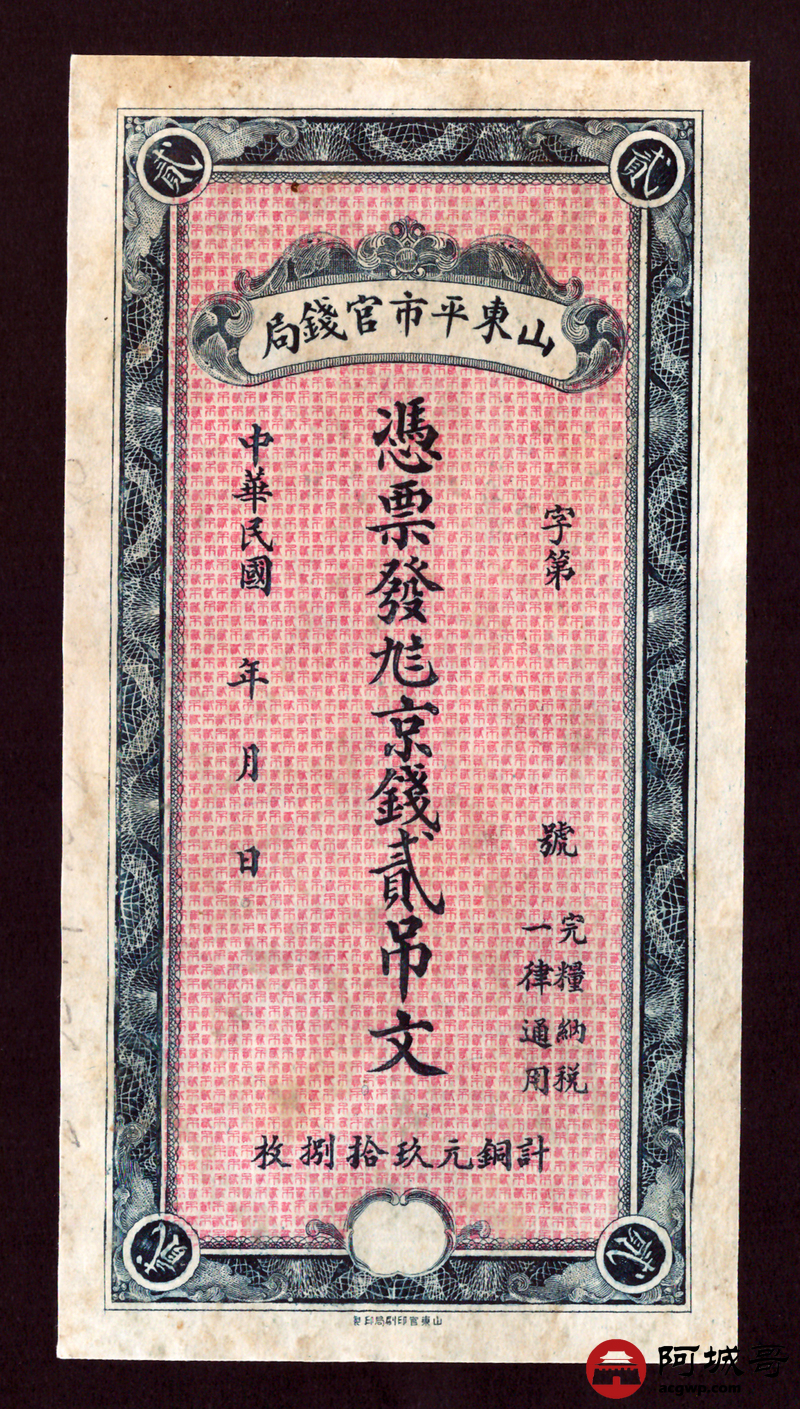 貳
貳
山東平市官錢局
字第 號
完糧納稅
一律通用
憑票發九七京錢貳吊文
中華民國 年 月 日
計銅元玖拾捌枚
貳
貳
山東官印刷局印製
阿城哥
acgwp.com